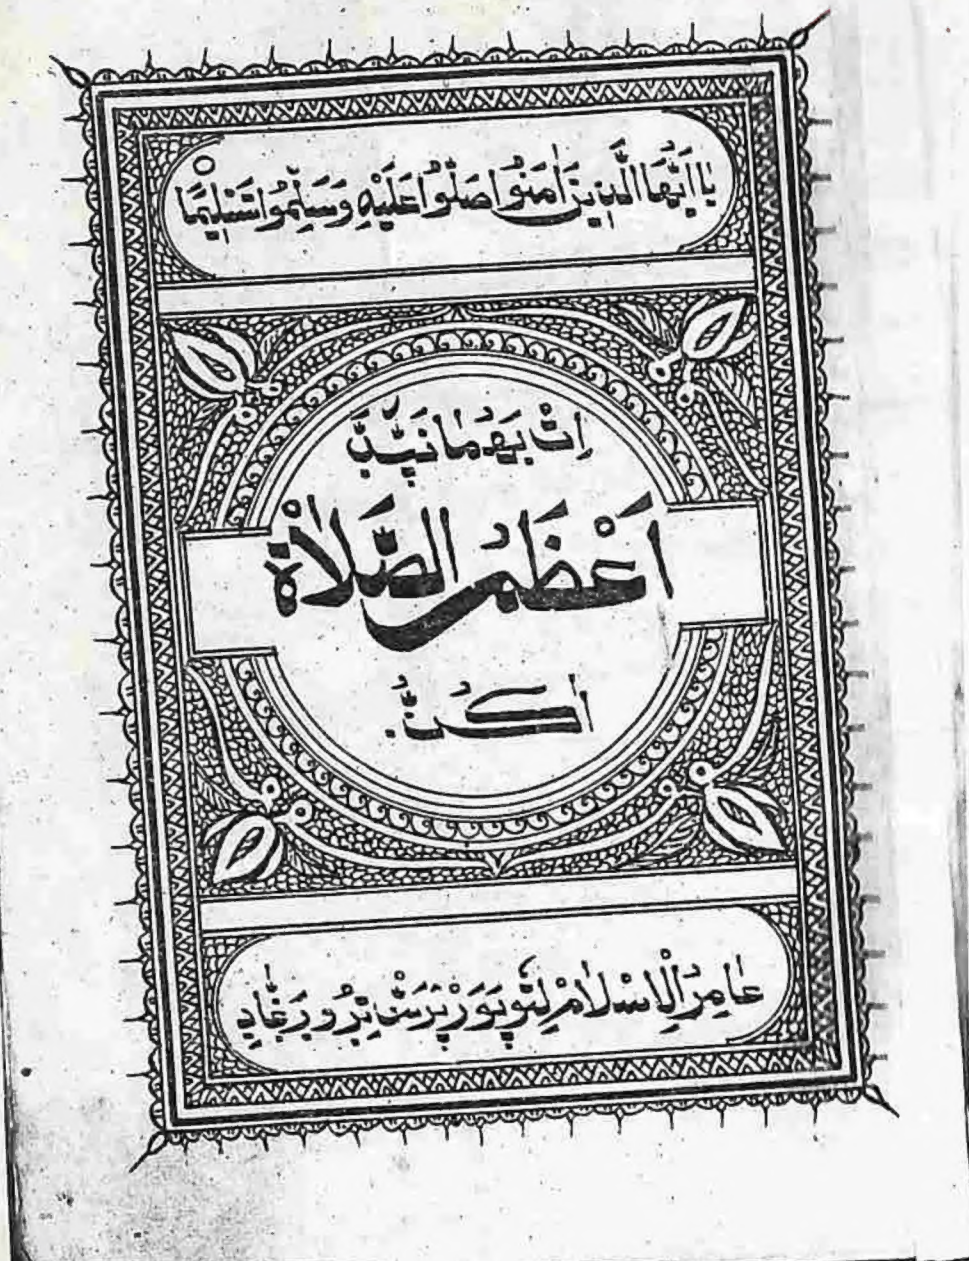 يٰا اَيُّهَا الَّذِينَ اٰمَنُوا صَلُّوا عَلَيْهِ وَسَلِّمُوا تَسْلِيْمًا
اِتْ بَهُمٰانَپّٹَّ
اَعْظَمُ الصَّلَاةْ
اٰكُنُّ.
عٰامِرُ الْاِسْلٰامْ لِتّوپَوَرْ پْرَسّْ تِرُورَغّٰادِ